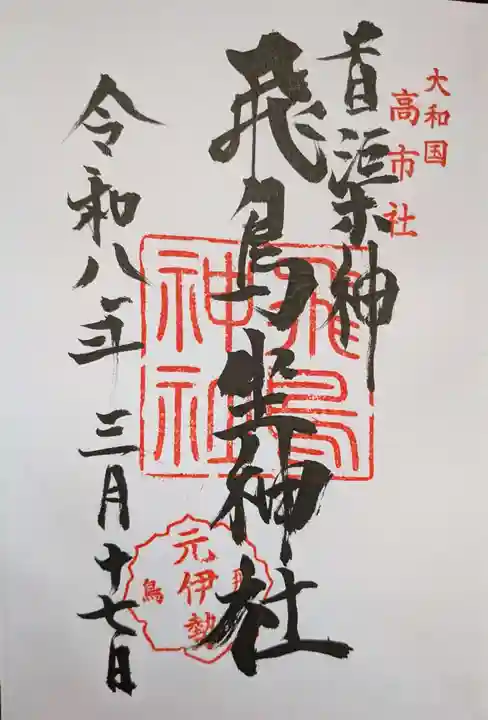 大和国
高市社
首渠神
飛鳥坐神社
飛鳥
神社
元伊勢
鳥
令和八年三月十七日